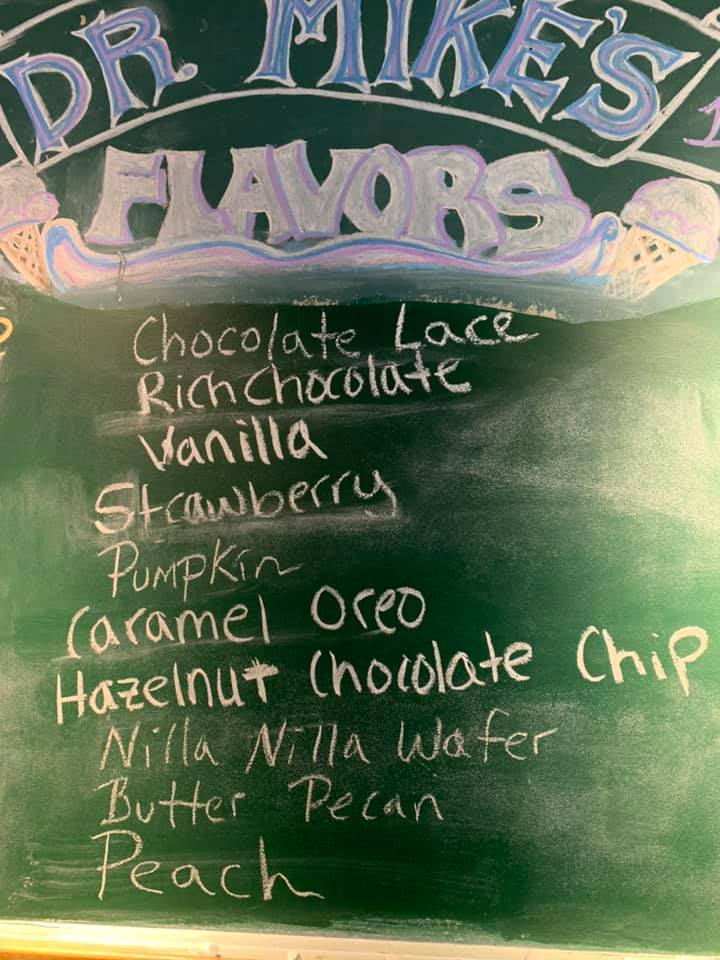 DR. MIKE'S
FLAVORS
Chocolate Lace
Rich Chocolate
Vanilla
Strawberry
Pumpkin
Caramel Oreo
Hazelnut Chocolate Chip
Nilla Nilla Wafer
Butter Pecan
Peach